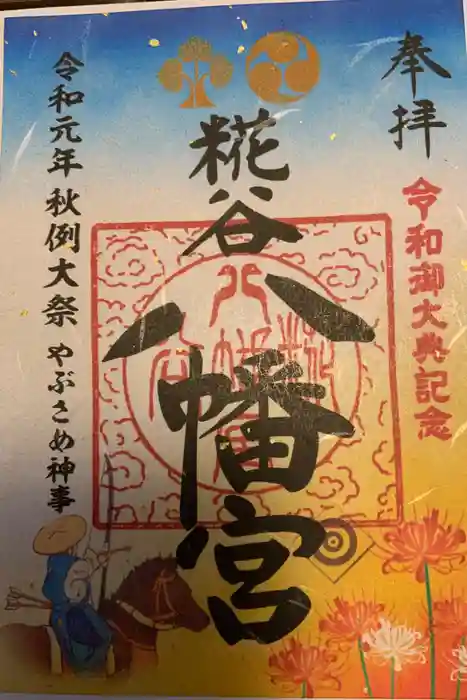 奉拝
令和御大典記念
糀谷
八幡宮
令和元年 秋例大祭 やぶさめ神事